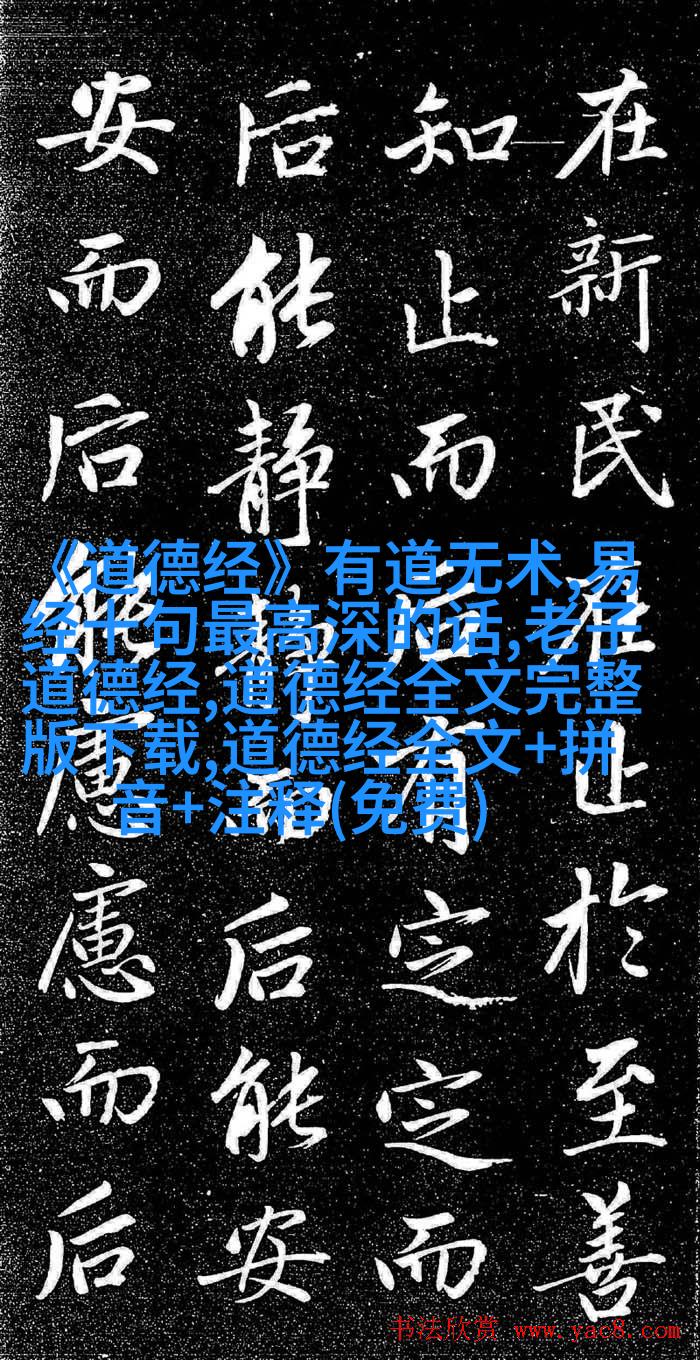 在新民在止於至善
知止而后有定定而
后能静静而后能安
安而后能慮慮而后
《道德经》有道无术,易
经十句最高深的话,老子
道德经,道德经全文完整
版下载,道德经全文+拼
音+注释(免费)
书法欣赏 www.yac8.com